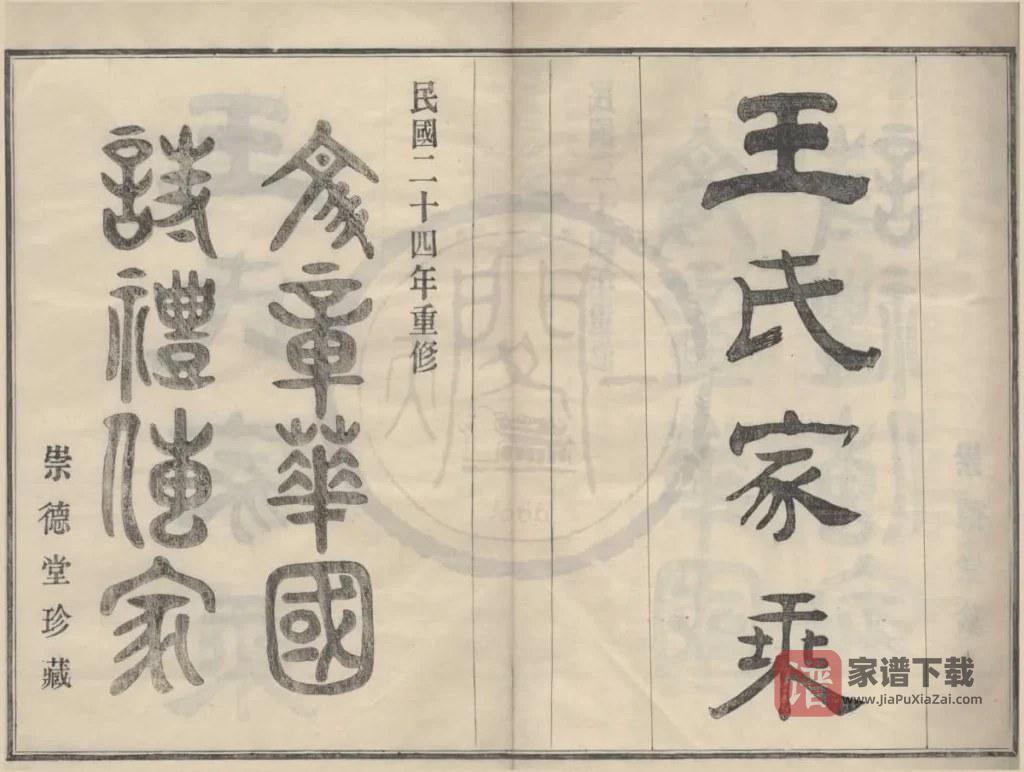 王氏家乘
民國二十四年重修
文章華國
詩禮傳家
崇德堂珍藏
谱
家谱下载
www.JiaPuXiaZai.com